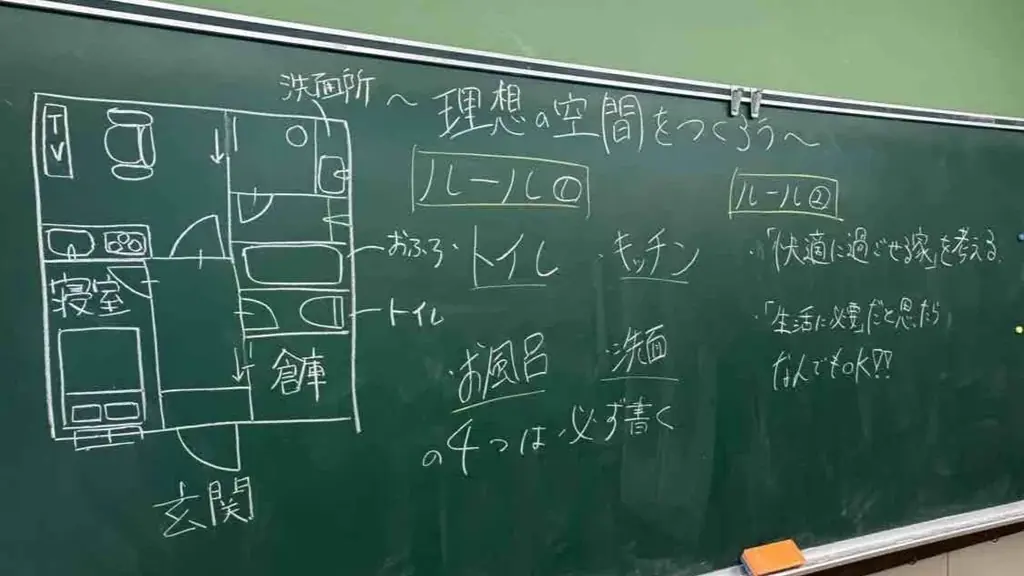 洗面所
～理想の空間をつくろう～
ルール①
・トイレ ・キッチン
・お風呂 ・洗面
の4つは必ず書く
ルール②
・「快適に過ごせる家」を考える。
・「生活に必要」だと思ったら
なんでもOK!!
T
おふろ
トイレ
寝室
倉庫
玄関